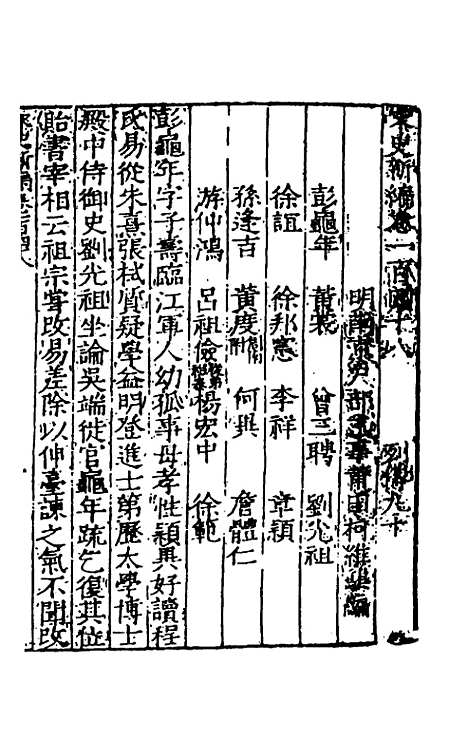 宋史新編卷一百四十八 列傳九十
明南京戶部主事莆田柯維騏編
彭龜年 黃裳 曾三聘 劉光祖
徐誼 徐邦憲 李祥 章穎
孫逢吉 黃度 何異 詹體仁
游仲鴻 呂祖儉 楊宏中 徐範
彭龜年字子壽臨江軍人幼孤事母孝性穎異好讀程
氏易從朱熹張栻質疑學益明登進士第歷太學博士
殿中侍御史劉光祖坐論吳端徙官龜年疏乞復其位
貽書宰相云祖宗嘗改易差除以伸臺諫之氣不聞改